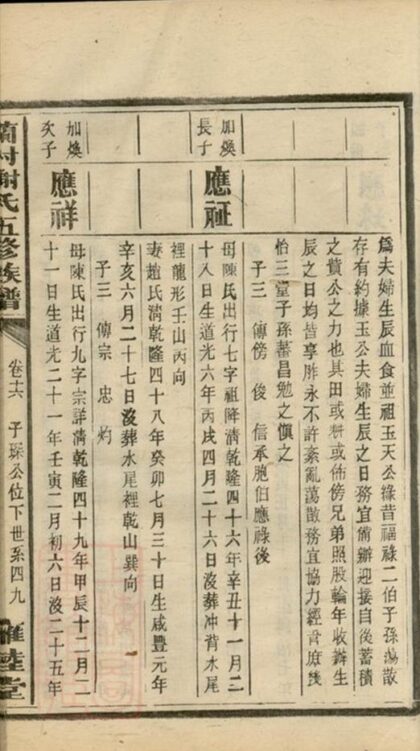 爲夫婦生辰血食並祖玉天公祿昔福祿二伯子孫蕩散
存有約據玉公夫婦生辰之日務宜備辦迎接自後蓄積
之貲公之力也其田或耕或佈傍兄弟照股輪年收辦生
辰之日均昔享胙永不許紊亂蕩散務宜協力經營庶幾
怡三堂子孫蕃昌勉之愼之
子三 傳傍 俊 信承胞伯應祿後
加煥長子
應䃼
母陳氏出行七字祖降清乾隆四十六年辛丑十一月二
十八日生道光六年丙戌四月二十六日沒葬冲背木尾
裡龍形壬山丙向
妻趙氏清乾隆四十八年癸卯七月三十日生咸豐元年
辛亥六月二十七日沒葬木尾裡乾山巽向
子三 傳宗 忠 灼
加煥次子
應祥
母陳氏出行九字宗詳清乾隆四十九年甲辰十二月二
十一日生道光二十一年壬寅二月初六日沒二十五年
謝氏五修族譜
卷十六 子琛公位下世系四九
雍睦堂